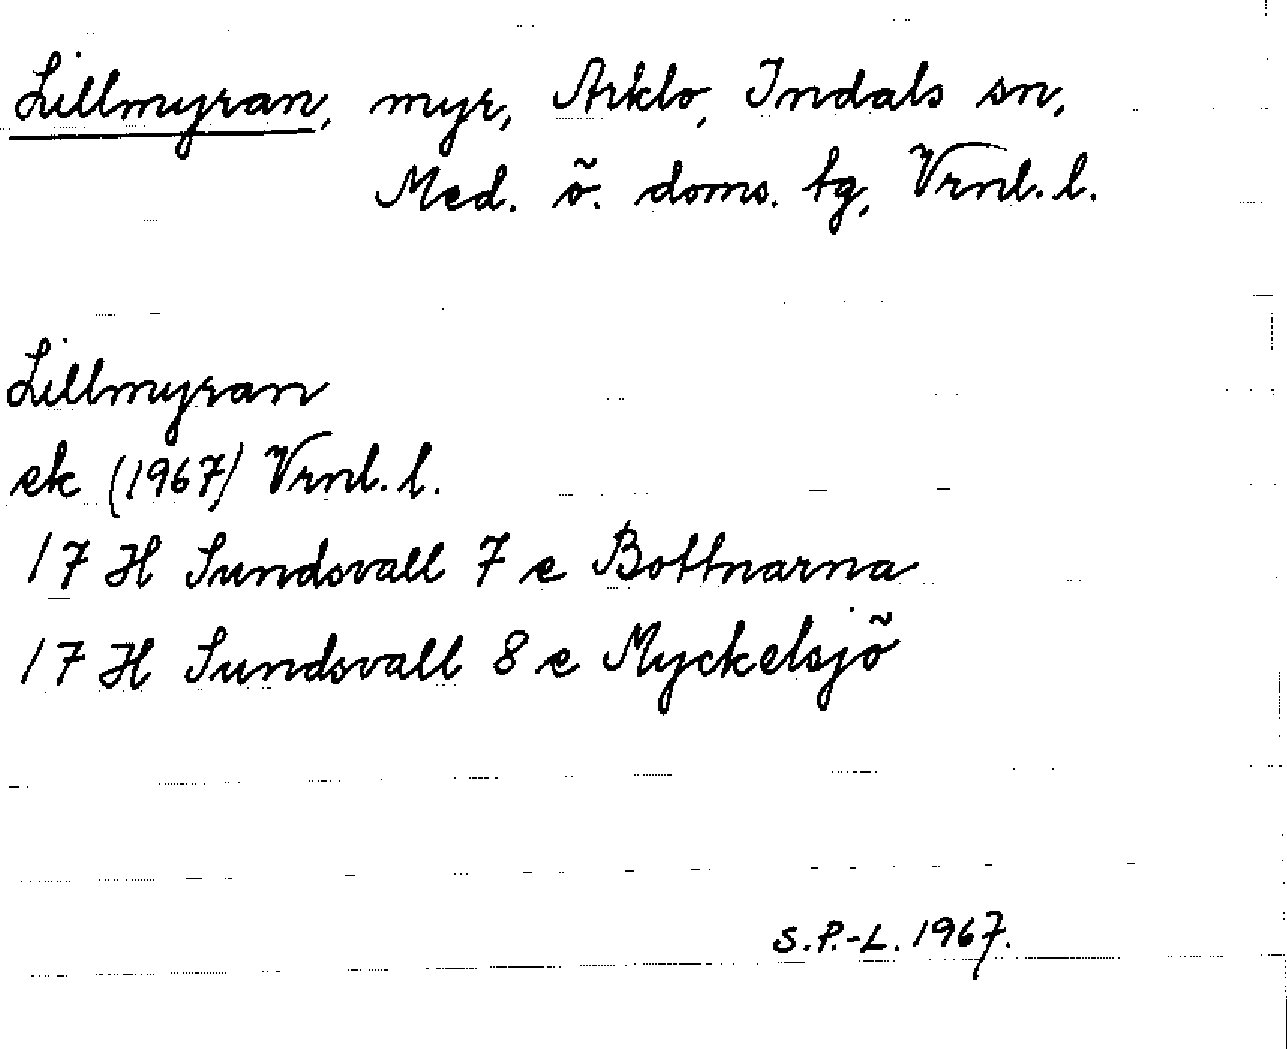 Lillmyran, myr, Arklo, Indals sn,
Med. ö. doms. tg, Vrnl. l.
Lillmyran
ek (1967) Vrnl. l.
17 H Sundsvall 7 e Bottnarna
17 H Sundsvall 8 e Myckelsjö
S.P.-L. 1967.